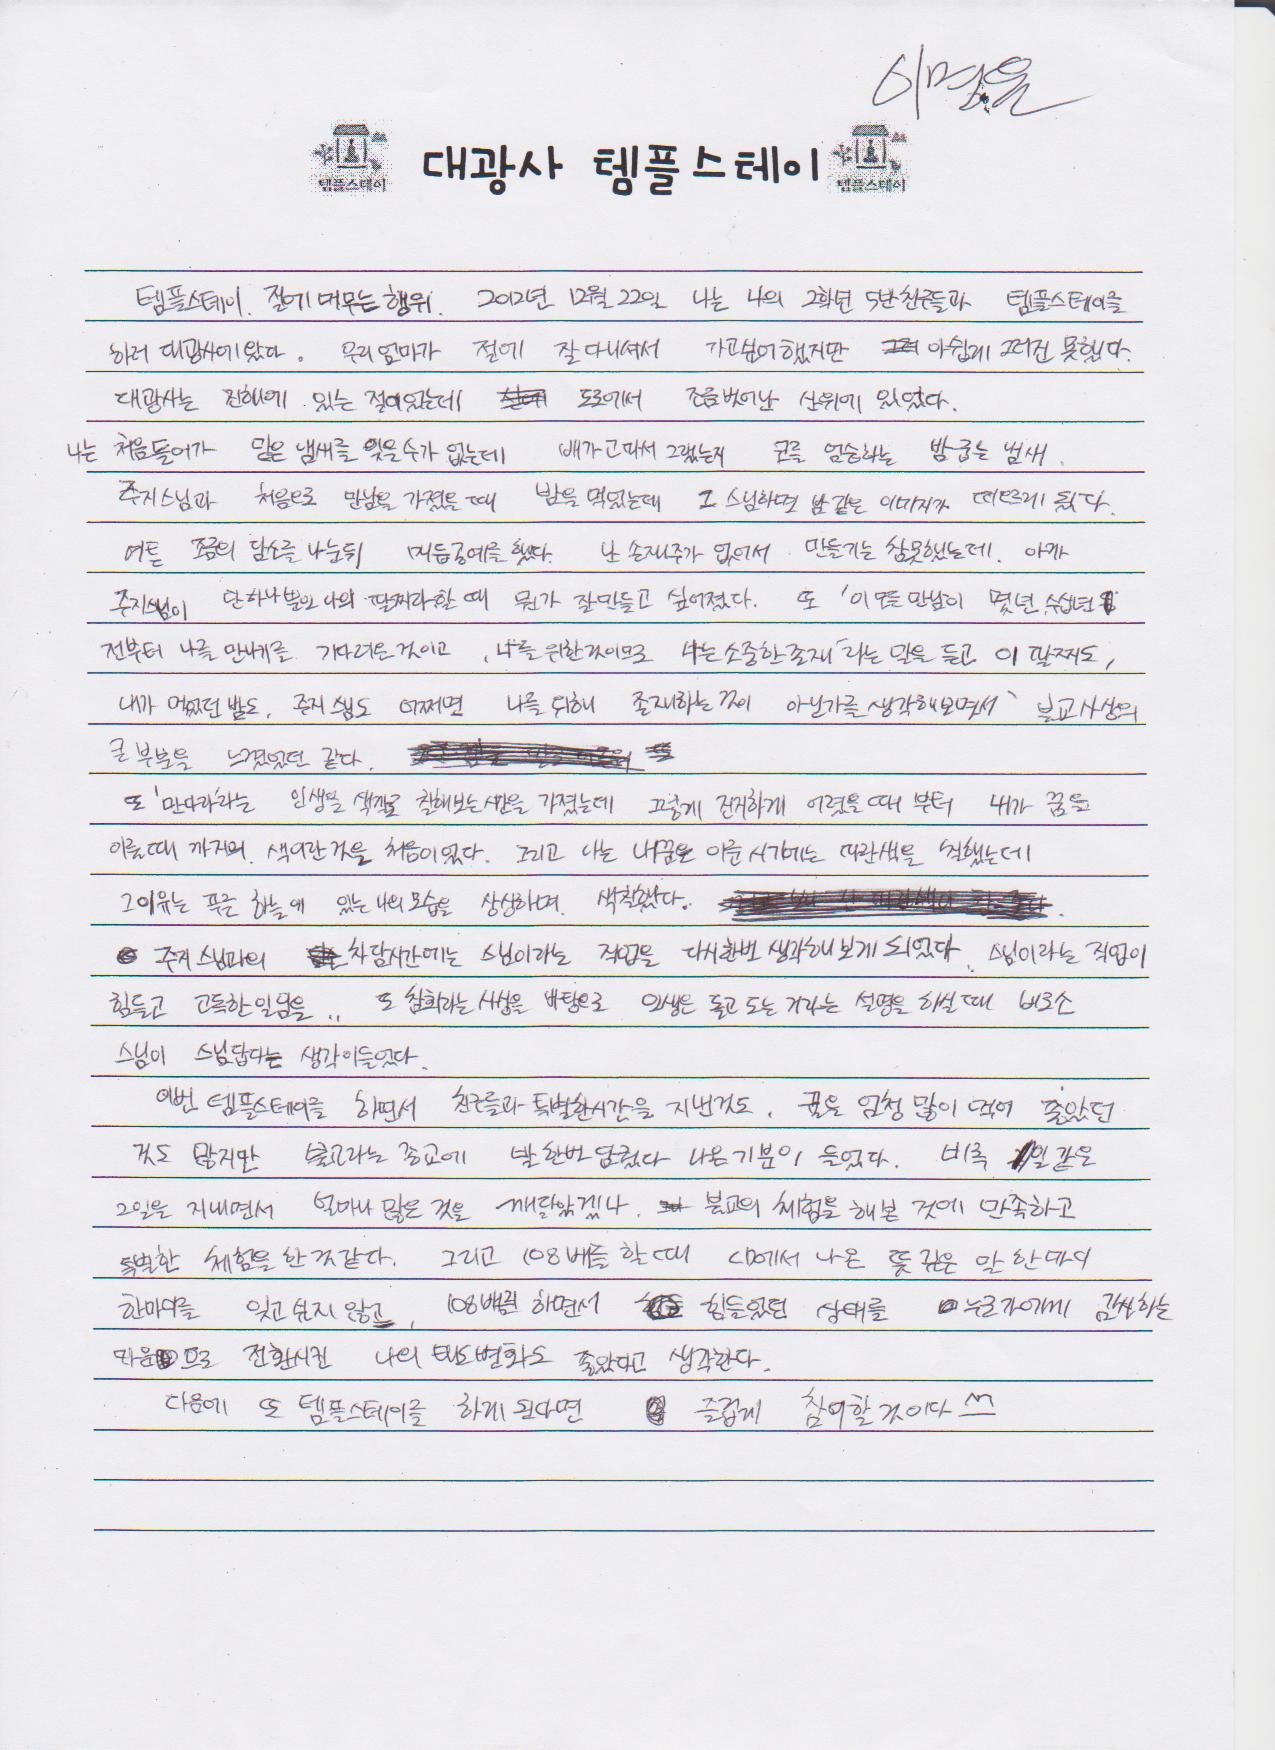 대광사 템플스테이
템플스테이
템플스테이
템플스테이. 절에 머무는 행위. 2012년 12월 22일 나는 나의 2학년 5반 친구들과 템플스테이를
하러 대광사에 왔다. 우리 엄마가 절에 잘 다니셔서 가고싶어 했지만 아쉽게 그러진 못했다.
대광사는 진해에 있는 절이었는데 도로에서 조금 벗어난 산위에 있었다.
나는 처음 들어가 맡은 냄새를 잊을수가 없는데 배가고파서 그랬는지 코를 엄습하는 밤굽는 냄새.
주지스님과 처음으로 만남을 가졌을 때 밤을 먹었는데 그 스님하면 밤 같은 이미지가 떠오르게 됬다.
여튼 조금의 담소를 나눈뒤 매듭공예를 했다. 난 손재주가 없어서 만들기는 참못했는데. 아까
주지스님이 단하나뿐인 나의 팔찌라 할 때 뭔가 잘만들고 싶어졌다. 또 '이 모든 만남이 몇년, 수십년
전부터 나를 만나게를 기다려온 것이고, 나를 위한것이므로 나는 소중한 존재'라는 말을 듣고 이 팔찌도,
내가 먹었던 밤도, 주지스님도 어쩌면 나를 위해 존재하는 것이 아닌가를 생각해보면서 불교사상의
큰 부분을 느꼈었던 같다.
또 '만다라'라는 인생을 색깔로 칠해보는 시간을 가졌는데 그렇게 진지하게 어렸을 때 부터 내가 꿈을
이룰때 까지의 색이란 것을 처음이었다. 그리고 나는 내꿈을 이룬 시기에는 파란색을 칠했는데
그 이유는 푸른 하늘에 있는 나의 모습을 상상하며 색칠했다.
주지스님과의 차담시간에는 스님이라는 직업을 다시한번 생각해 보게 되었다. 스님이라는 직업이
힘들고 고독한 일임을.. 또 참회라는 사상을 바탕으로 인생은 돌고 도는 거라는 설명을 하실 때 비로소
스님이 스님답다는 생각이 들었다.
이번 템플스테이를 하면서 친구들과 특별한시간을 지낸것도, 귤을 엄청 많이 먹어 좋았던
것도 많지만 불교라는 종교에 발 한번 담궜다 나온 기분이 들었다. 비록 1일 같은
2일을 지내면서 얼마나 많은 것을 깨달았겠냐. 불교의 체험을 해본 것에 만족하고
특별한 체험을 한 것같다. 그리고 108배를 할 때 CD에서 나온 뜻 깊은 말 한마디
한마디를 잊고 싶지 않고, 108배를 하면서 힘들었던 상태를 누군가에게 감사하는
마음으로 전환시킨 나의 태도변화도 좋았다고 생각한다.
다음에 또 템플스테이를 하게 된다면 즐겁게 참여할 것이다 ^^